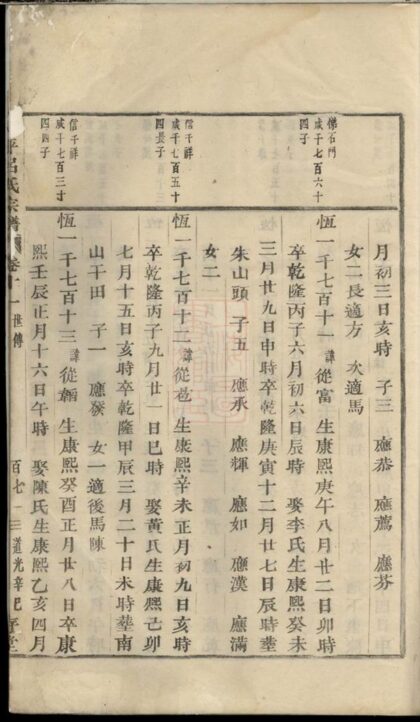 傑石門
咸千七百六十
三子
信千祥
咸千七百五十
四長子
信千祥
咸千七百三寸
四四子
月初三日亥時 子三 應恭 應薦 應芬
女二長適方 次適馬
恆一千七百十一諱從富 生康熙庚午八月廿二日卯時
卒乾隆丙子六月初六日辰時 娶李氏生康熙癸未
三月廿九日申時卒乾隆庚寅十二月廿七日辰時塟
朱山頭 子五 應承 應輝 應如 應漢 應滿
女二
恆一千七百十二諱從 生康熙辛未正月初九日亥時
卒乾隆丙子九月廿一日巳時 娶黃氏生康熙己卯
七月十五日亥時卒乾隆甲辰三月二十日未時塟南
山干田 子一 應發 女一適後馬陳
恆一千七百十三諱從韜 生康熙癸酉正月廿八日卒康
熙壬辰正月十六日午時 娶陳氏生康熙乙亥四月
呂氏宗譜 卷十一世傳 百七 道光辛巳